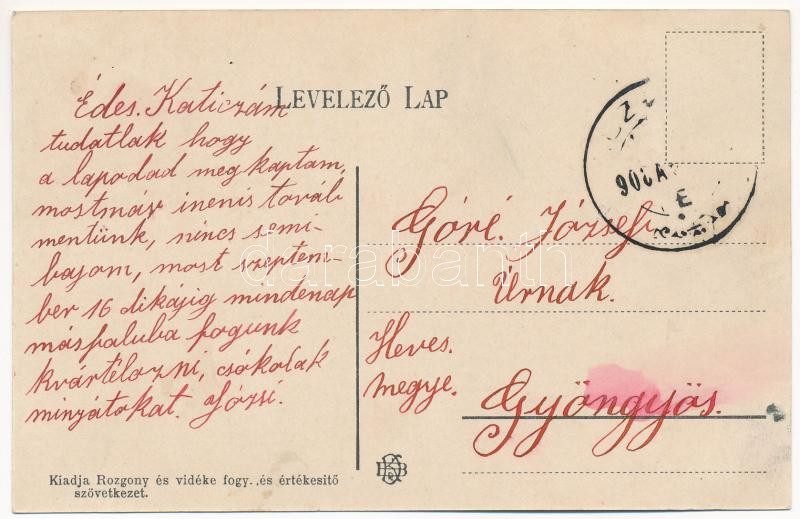 LEVELEZŐ LAP
Édes. Katiczám
tudatlak hogy
a lapodad megkaptam,
mostmár inenis továb
mentünk, nincs semi-
bajom, most szeptem-
ber 16 dikájig mindenap
másfaluba fogunk
kvártélozni, csókolak
minyátokat. Józsi.
Góré. József
Úrnak.
Heves.
megye.
Gyöngyös.
darabanth
Kiadja Rozgony és vidéke fogy. .és értékesitő
szövetkezet.